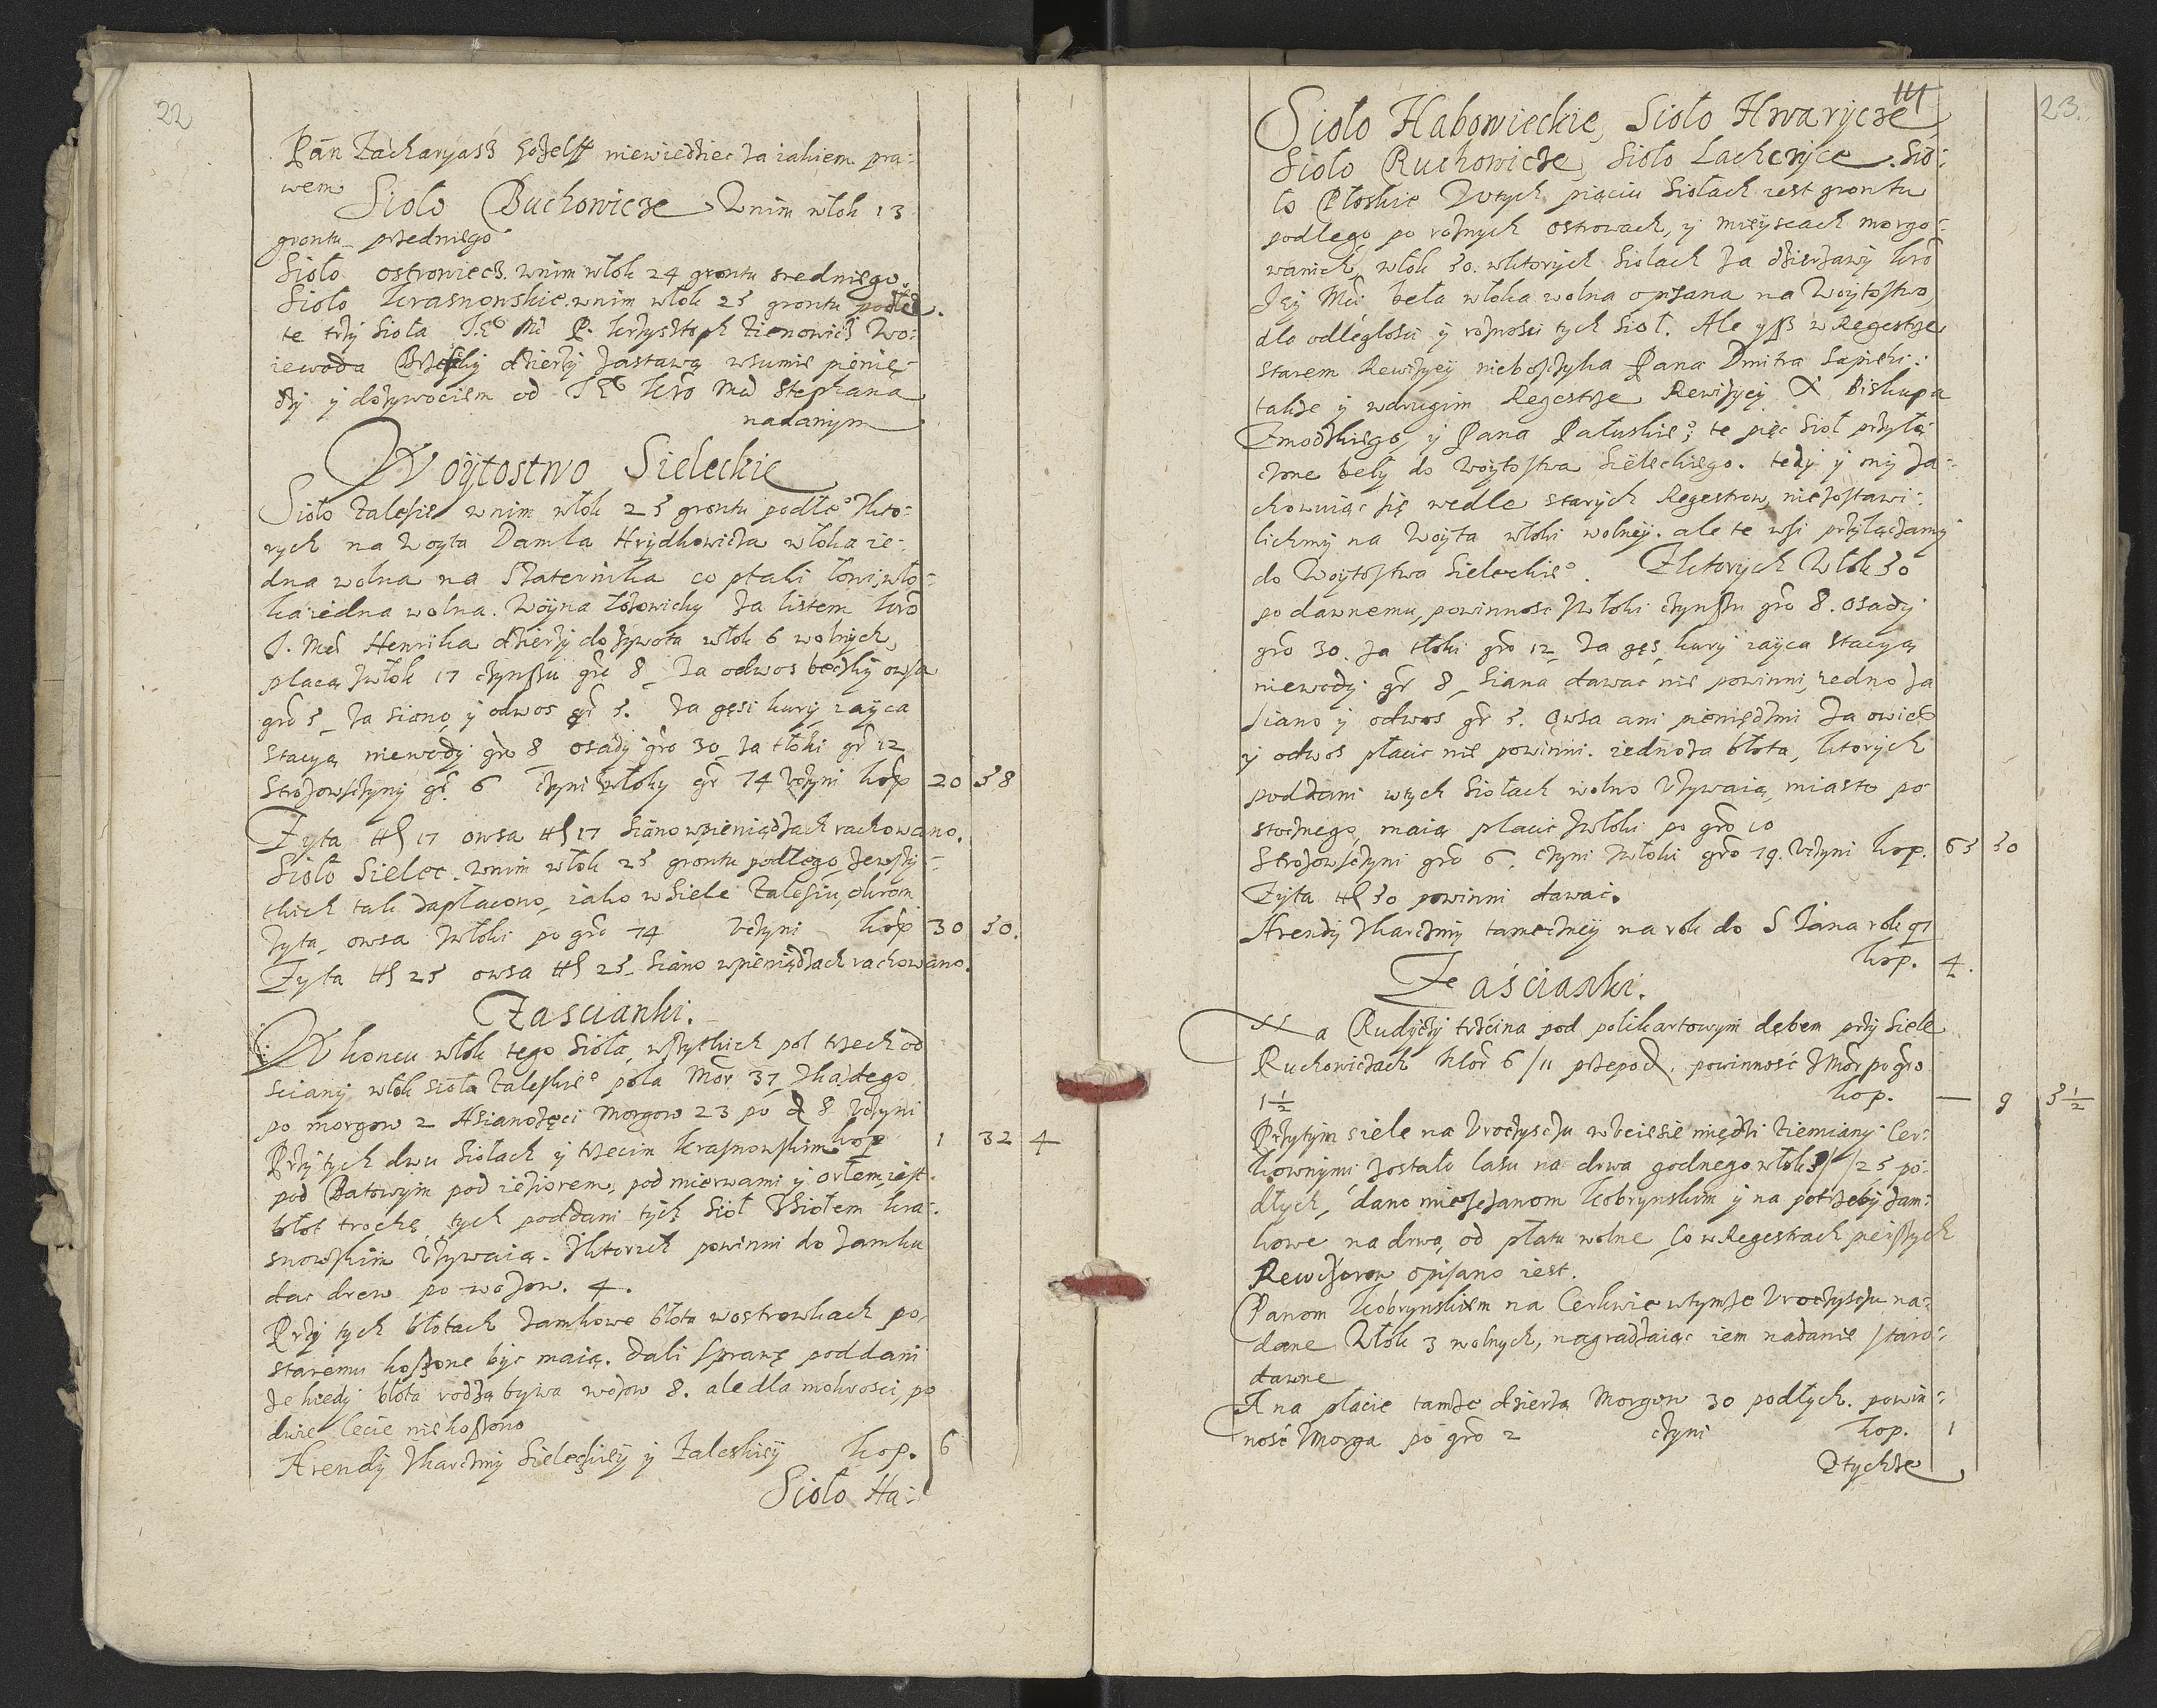 22
Pan Zacharyasz niewiedziec za iakiem pra-
wem
Sioło Buchowicze. W nim włok 13
grontu przedniego
Sioło ostrowiecz. wnim włok 24 grontu sredniego.
Sioło Krasnowskie. wnim włok 25 grontu
te trzy Sioła Je° Mć P. Krzysztoph Zienowicz Wo-
iewoda dzierzy zastawą wsumie pienię-
dzy y dozywociem od Je° Kro Mci Stephana
nadanym
Woÿtostwo Sieleckie
Sioło Zalesie wnim włok 25 grontu podłe° Zkto-
rych na Woyta Damla Hrydkowicza włoka ie-
dna wolna na Szaternika co ptaki łowi, wło-
ka iedna wolna. Woÿna za listem Kro
J. Mci Henrika dzierzy do zywota włok 6 wolnych,
płacą zwłok 17 czynszu gro 8 za odwos beczky owsa
gro 5 za siano y odwos gr 5. Za gęsi kury iayca
stacyą niewody gro 8 osady gro 30 za tłoki gr 12
Strozowsczyny gr. 6 czyni zwłoky gr 74 Vczyni kop 20 58
Zyta 17 owsa 17 Siano wpieniądzach rachowano.
Sioło Sielec. wnim włok 25 grontu podłego, zewszy-
tkich tak zapłacono, iako w Siele Zalesiu, okrom
zyta, owsa zwłoki po gro 74 Vczyni kop 30 50.
Zyta 25 owsa 25 Siano wpieniądzach rachowano.
Zascianki.
W koncu włok tego Sioła, wszytkich pol trzech od
sciany włok sioła Zaleskie° pola Mor 37 Zkazdego
po morgow 2 Asianozęci Morgow 23 po 8 Vczyni
Przy tych dwu Siołach y trzecim Krasnowskim kop 1 32 4
pod Batowym pod ieziorem, pod mierwami y orłem, iest
błot trochę, tych poddani tych Sioł Siołem Kra-
snowskim Vzywaią. Zktorzch powinni do zamku
dac drew po wozow. 4.
Przy tych błotach zamkowe błota wostrowkach po
staremu koszone byc maią. dali sprawę poddani
ze kiedy błota rodzą bywa wozow 8. ale dla mokrosci, po
dwie lecie niekoszono
Arendy Zkarczmy Sieleckiey y Zaleskiey kop. 6
Sioło Ha-
23.
Sioło Habowieckie, Sioło Hwarÿcze
Sioło Ruchowicze, Sioło Lachczyce. Sio-
ło Płoskie Wtych pięciu Siołach iest grontu
podłego po roznych ostrowach, y mieyscach morgo-
wanich, włok 50. wktorych Siołach za dzierzawy Kro
Jey Mci beła włoka wolna opisana na Woytostwo,
dlo odległosci y roznosci tych Sioł. Ale ysz w Regestrze
starem Rewizyey nieboszczyka Pana Dmitra Sapiehi:
takze y wdrugim Regestrze Rewizyey X Biskupa
Zmodzkiego, y Pana te pięc Sioł przyłą-
czone beły do Woytostwa Sieleckiego. tedy y my za-
chowuiąc się wedle starych Regestrow, niezostawi-
lichmy na Woyta włoki wolney. ale te wsi przyłączamy
do Woytostwa Sieleckie°. Zktorych Włok 50
po dawnemu, powinnosc zwłoki czynszu gro 8. osady
gro 30. za tłoki gro 12 za gęs, kury iayca stacyą
niewody gr 8 Siana dawac nie powinni, iedno za
siano y odwos gr 5. Owsa ani pieniędzmi za owies
y odwos płacic nie powinni. iedno za błota, ktorych
poddani wtych Siołach wolno Vzywaią, miasto po
stocznego, maią płacic zwłoki po gro 10
Strozowsczyni gro 6. czyni zwłoki gro 79. Vczyni kop. 65 50
Zyta 50 powinni dawac.
Arendy Zkarczmy tameczney na rok do S Jana rok 91
kop. 4.
Zaścianki.
Na Rudyczy trzcina pod polikartowym dębem przy Siele
Ruchowiczach Mor 6/11 przepod. powinność zMor po gro
1½ kop. — 9 5½
Przy tym siele na Vroczysczu wbciesie między Ziemiany Cer-
kownymi zostało lasu na drwa godnego włok /25 po-
dłych, dano mieszczanom Kobrynskim y na potrzeby zam-
kowe na drwa, od płatu wolne, co w Regestrach pierszych
Rewizorow opisano iest.
Panom Kobrynskiem na Cerkwie wtymze Vroczysczu na-
dane Włok 3 wolnych, nagradzaiąc iem nadanie staro-
dawne
A na płacie tamze dzierza Morgow 30 podłych. powin-
ność zMorga po gro 2 czyni kop. 1
Ztychze